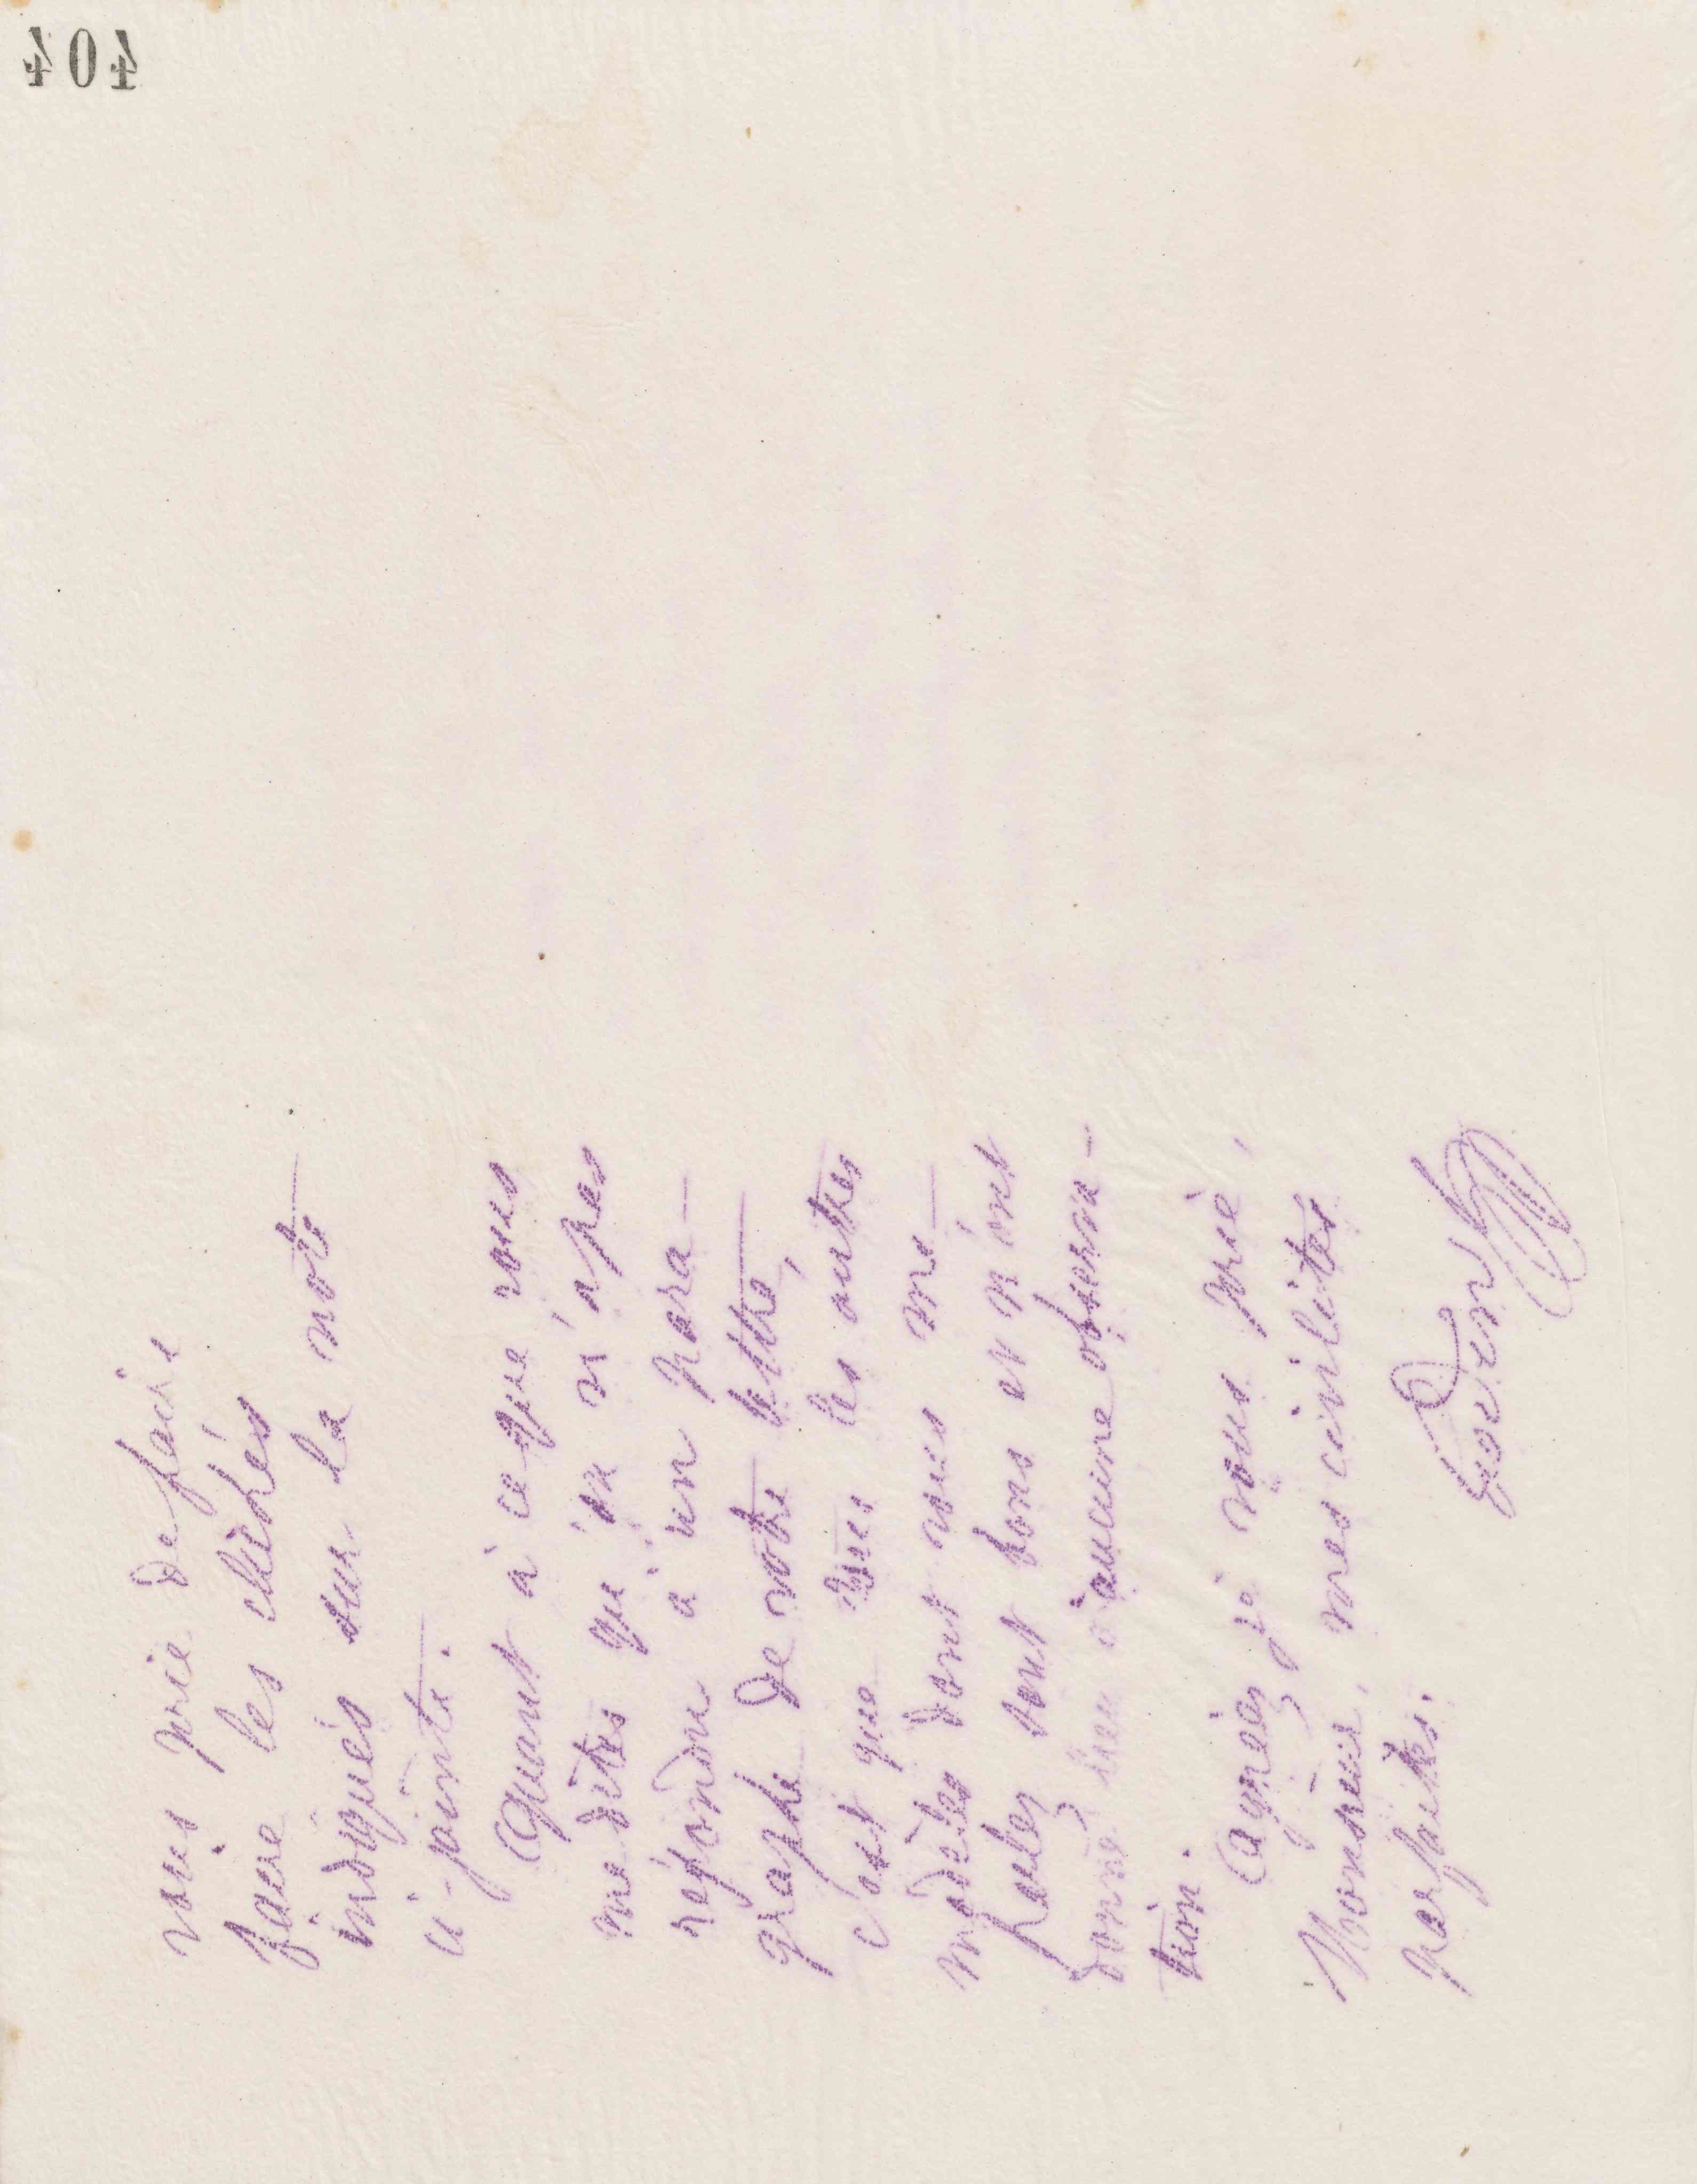 404
vous prie de faire
faire les clichés
indiqués sur la note
ci-jointe.
Quant à ce que vous
me dites qu'on n'a pas
répondu à un para-
graphe de votre lettre,
c'est que tous les autres
modèles dont vous me
parlez sont bons et n'ont
donné lieu à aucune observa-
tion.
Agréez je vous prie,
Monsieur, mes civilités
parfaites.
Godin